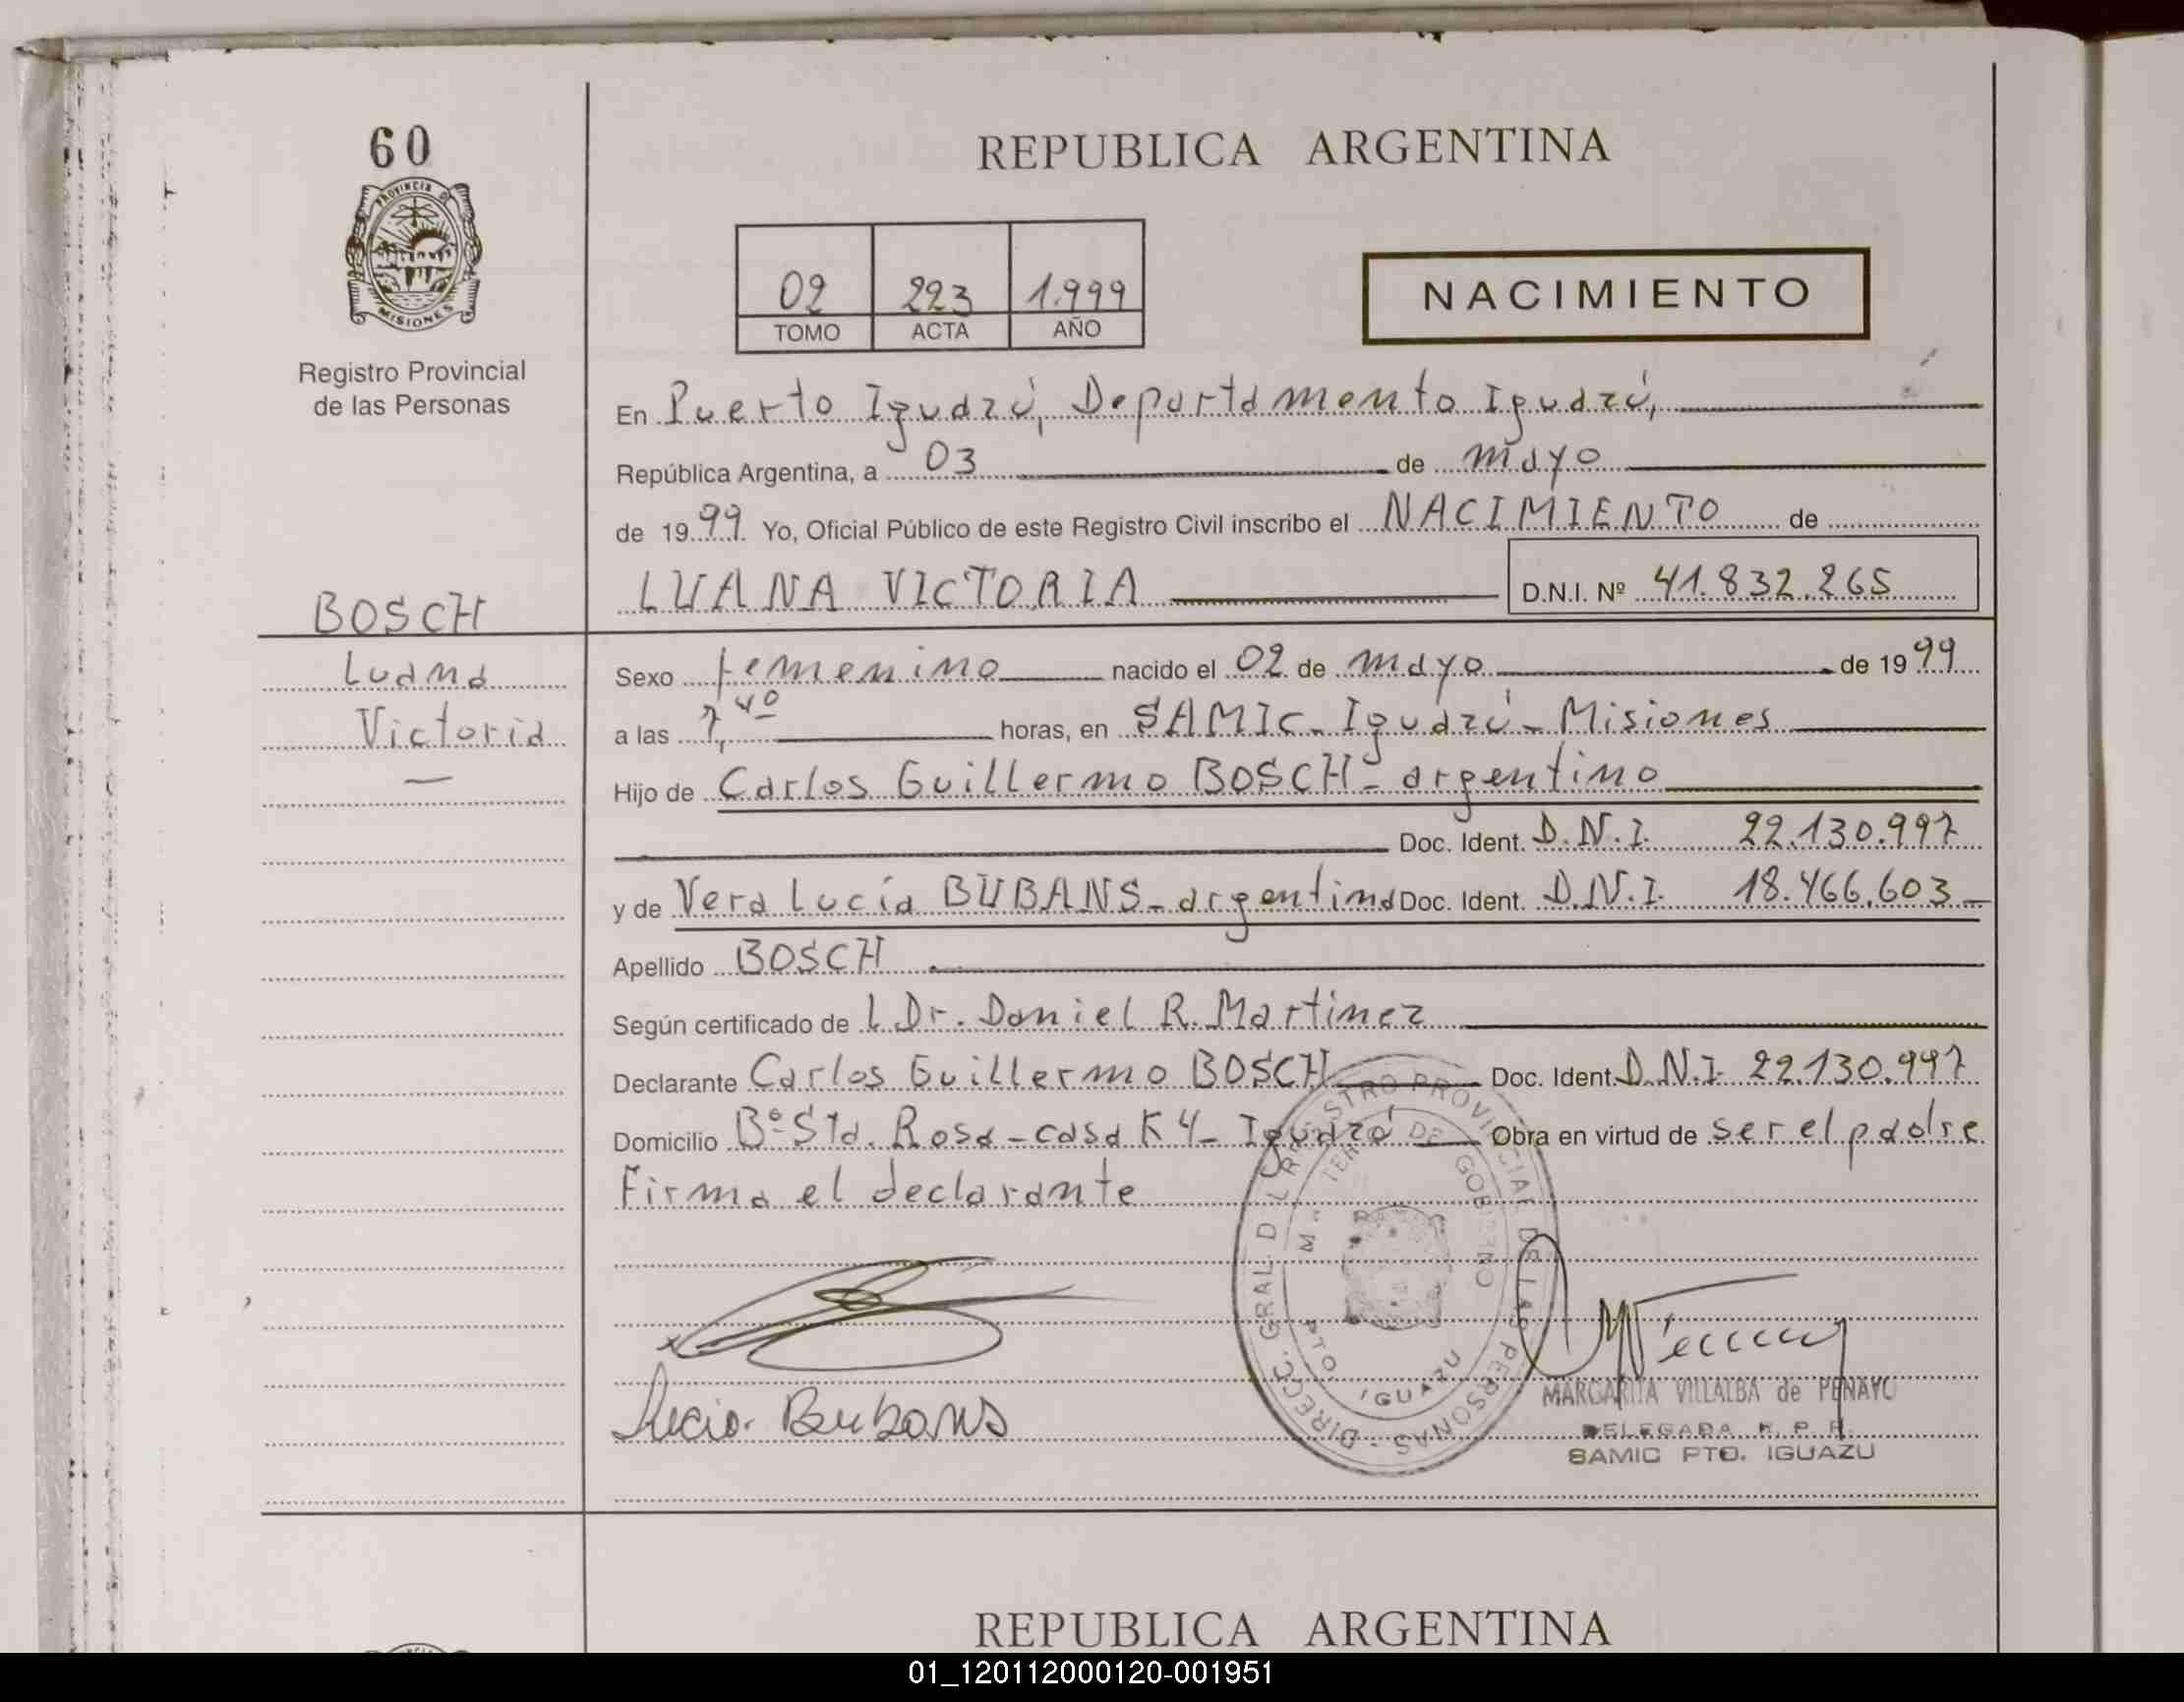 60
REPUBLICA ARGENTINA
PROVINCIA DE
MISIONES
Registro Provincial
de las Personas
02 223 1.999
TOMO ACTA AÑO
NACIMIENTO
En Puerto Iguazú, Departamento Iguazú,
República Argentina, a 03 de mayo
de 1999 Yo, Oficial Público de este Registro Civil inscribo el NACIMIENTO de
LUANA VICTORIA D.N.I. Nº 41.832.265
BOSCH
Luana
Victoria
Sexo femenino nacido el 02 de mayo de 1999
a las 7,40 horas, en SAMIC - Iguazú - Misiones
Hijo de Carlos Guillermo BOSCH - argentino
Doc. Ident. D.N.I. 22.130.997
y de Vera Lucía BUBANS - argentina Doc. Ident. D.N.I. 18.466.603 -
Apellido BOSCH
Según certificado de l Dr. Daniel R. Martinez
Declarante Carlos Guillermo BOSCH Doc. Ident. D.N.I. 22.130.997
Domicilio Bº Sta. Rosa - casa K 4 - Iguazú Obra en virtud de ser el padre
Firma el declarante
DIRECC. GRAL. D L REGISTRO PROVINCIAL DE LAS PERSONAS -
DE GOBIERNO
PTO. IGUAZU
Lucia Bubans
MARGARITA VILLALBA de PENAYO
DELEGADA R. P. P.
SAMIC PTO. IGUAZU
REPUBLICA ARGENTINA
01_120112000120-001951